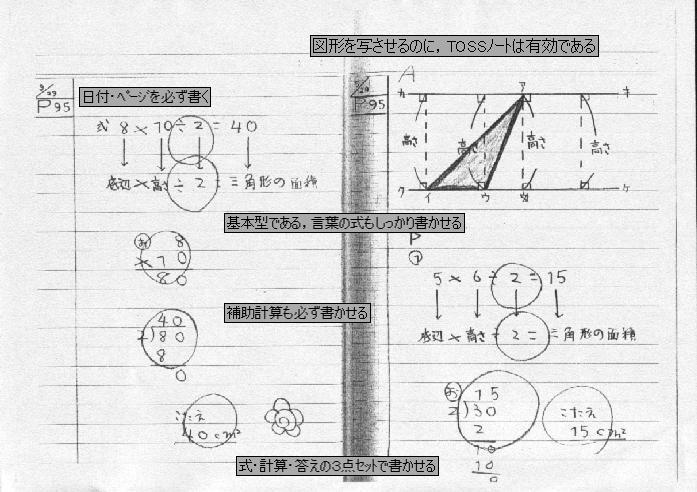 図形を写させるのに，TOSSノートは有効である
9/29
P95
日付・ページを必ず書く
式 8×10÷2=40
底辺×高さ÷2=三角形の面積
お 8
×10
80
40
2)80
8
0
こたえ
40cm²
9/29
P95
A
カ ア キ
高さ 高さ 高さ 高さ
ク イ ウ ケ
基本型である，言葉の式もしっかり書かせる
P
①
5×6÷2=15
底辺×高さ÷2=三角形の面積
補助計算も必ず書かせる
お 15
2)30
2
10
10
0
こたえ
15cm²
式・計算・答えの３点セットで書かせる